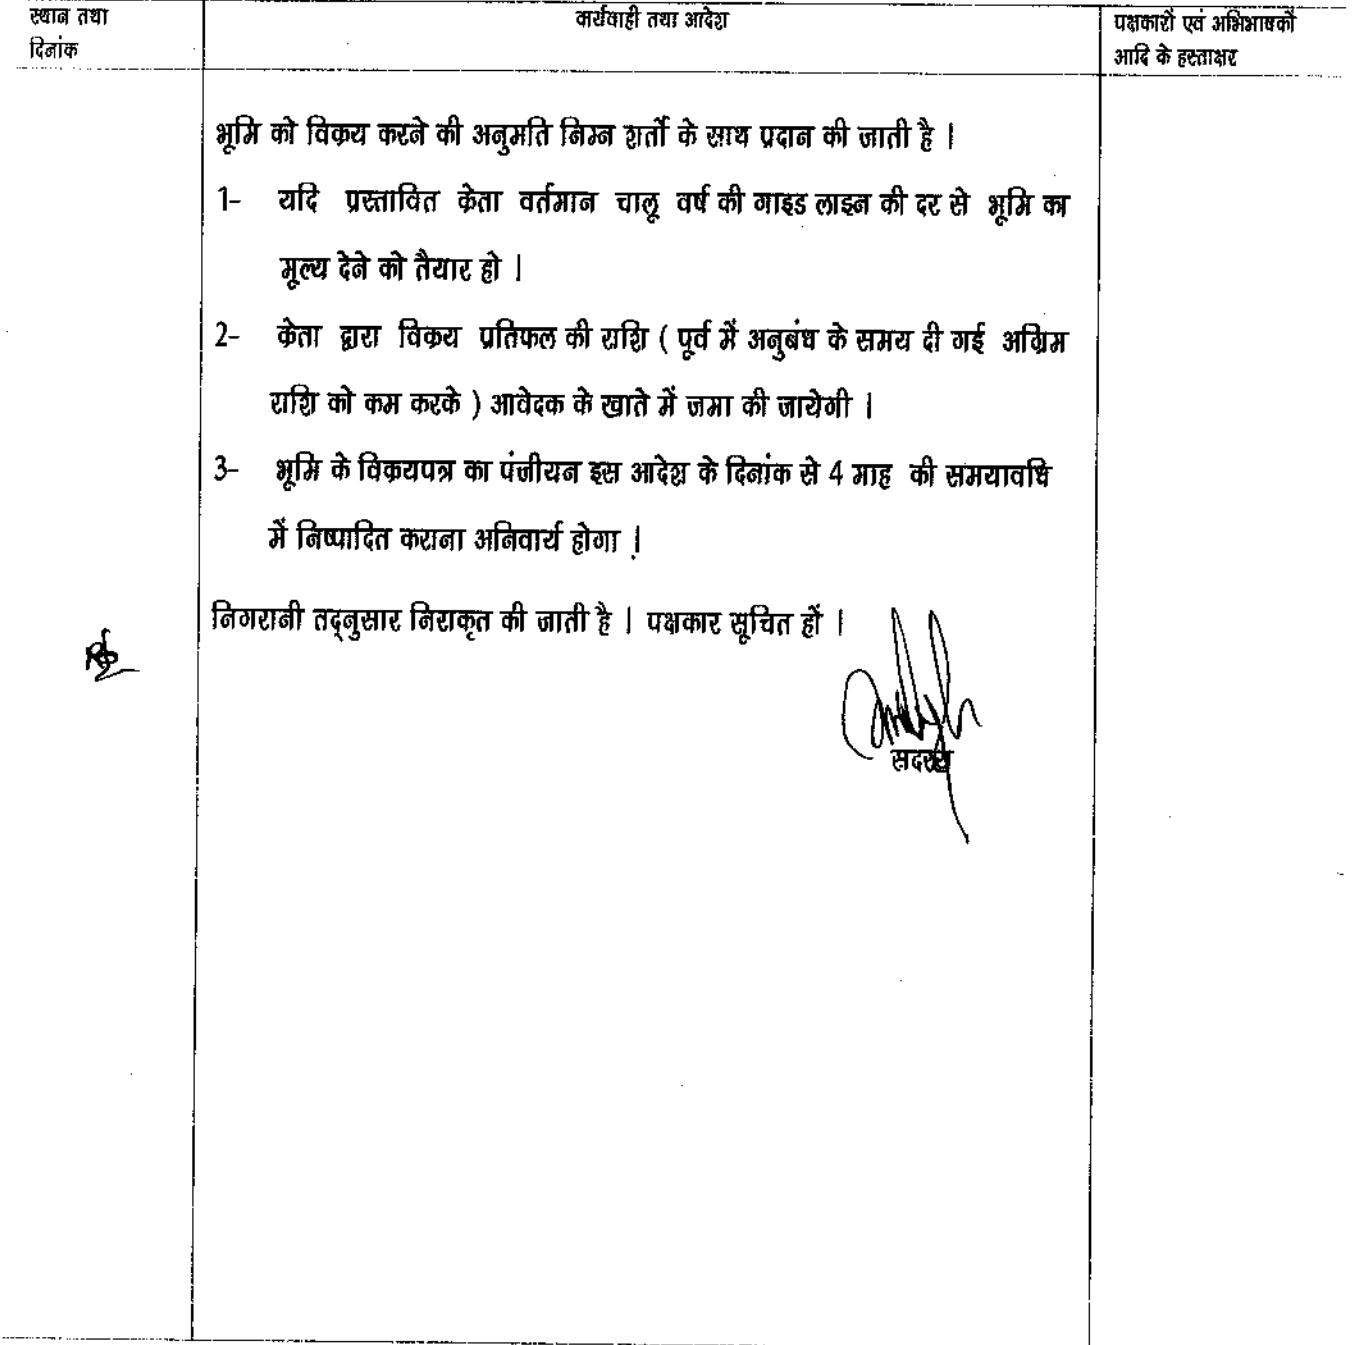 स्थान तथा
दिनांक
कार्यवाही तथा आदेश
पक्षकारों एवं अभिभाषकों
आदि के हस्ताक्षर
भूमि को विक्रय करने की अनुमति निम्न शर्तो के साथ प्रदान की जाती है ।
1- यदि प्रस्तावित क्रेता वर्तमान चालू वर्ष की गाइड लाइन की दर से भूमि का
मूल्य देने को तैयार हो ।
2- क्रेता द्वारा विक्रय प्रतिफल की राशि ( पूर्व में अनुबंध के समय दी गई अग्रिम
राशि को कम करके ) आवेदक के खाते में जमा की जायेगी ।
3- भूमि के विक्रयपत्र का पंजीयन इस आदेश के दिनांक से 4 माह की समयावधि
में निष्पादित कराना अनिवार्य होगा ।
निगरानी तद्नुसार निराकृत की जाती है । पक्षकार सूचित हों ।
सदस्य